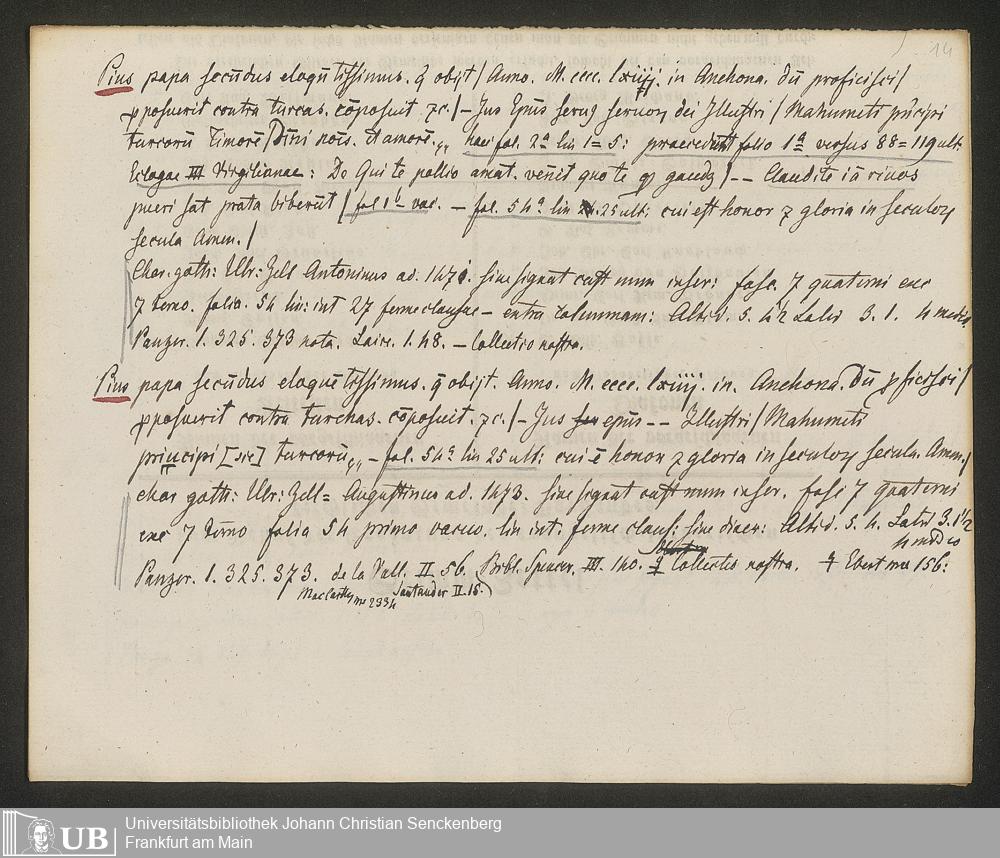 14
Pius papa secūdus eloquētissimus. q̄ obijt / Anno. M. cccc. lxiiij. in Anchona. dū proficisci /
p̱posuerit contra turcas. cōposuit. ⁊c. / – Jus Epūs seruꝰ seruoꝝ dei Illustri / Mahumeti prīcipi
turcorū Timorē / Diuini nōis. et amorē. haec fol. 2a lin 1 = 5: praecedunt folio 1a versus 88 = 119 ult.
Eclogae III Virgilianae: Dō Qui te pollio amat. veniet quo te qꝫ gaudꝫ / -- Claudite iā riuos
pueri sat prata biberūt / fol 1b vac. – fol. 54a lin 25 ult: cui est honor ⁊ gloria in seculoꝝ
secula Amen. /
Char. goth: Ulr: Zell Antoninus ad. 1470. sine signat cust num inser: fasc. 7 quaterni exc
7 terno. folia. 54 lin: int 27 ferme clausae – extra columnam: Altid. 5. 4½ Latid 3. 1. 4 medio
Panzer. 1. 325. 373 nota. Laire. 1. 48. – Collectio nostra.
Pius papa secūdus eloquētissimus. q̄ obijt. Anno. M. cccc. lxiiij. in. Anchona. Dū p̱ficisci /
p̱posuerit contra turchas. cōposuit. ⁊c. / – Jus epūs -- Illustri / Mahumeti
principi [sic] turcorū – fol. 54a lin 25 ult: cui ē honor ⁊ gloria in seculoꝝ secula. Amen. /
char goth: Ulr: Zell = Augustinus ad. 1473. sine signat cust num inser. fasc 7 quaterni
exc 7 terno folia 54 primo vacuo. lin int. ferme claus: sine diaer: Altid. 5. 4. Latid 3. 1½
4 medio
Panzer. 1. 325. 373. de la Vall. II 56. Bibl. Spencer. III. 140. Collectio nostra. Ebert 156:
MacCarthy 2334 Santander II. 15.
Universitätsbibliothek Johann Christian Senckenberg
Frankfurt am Main
UB